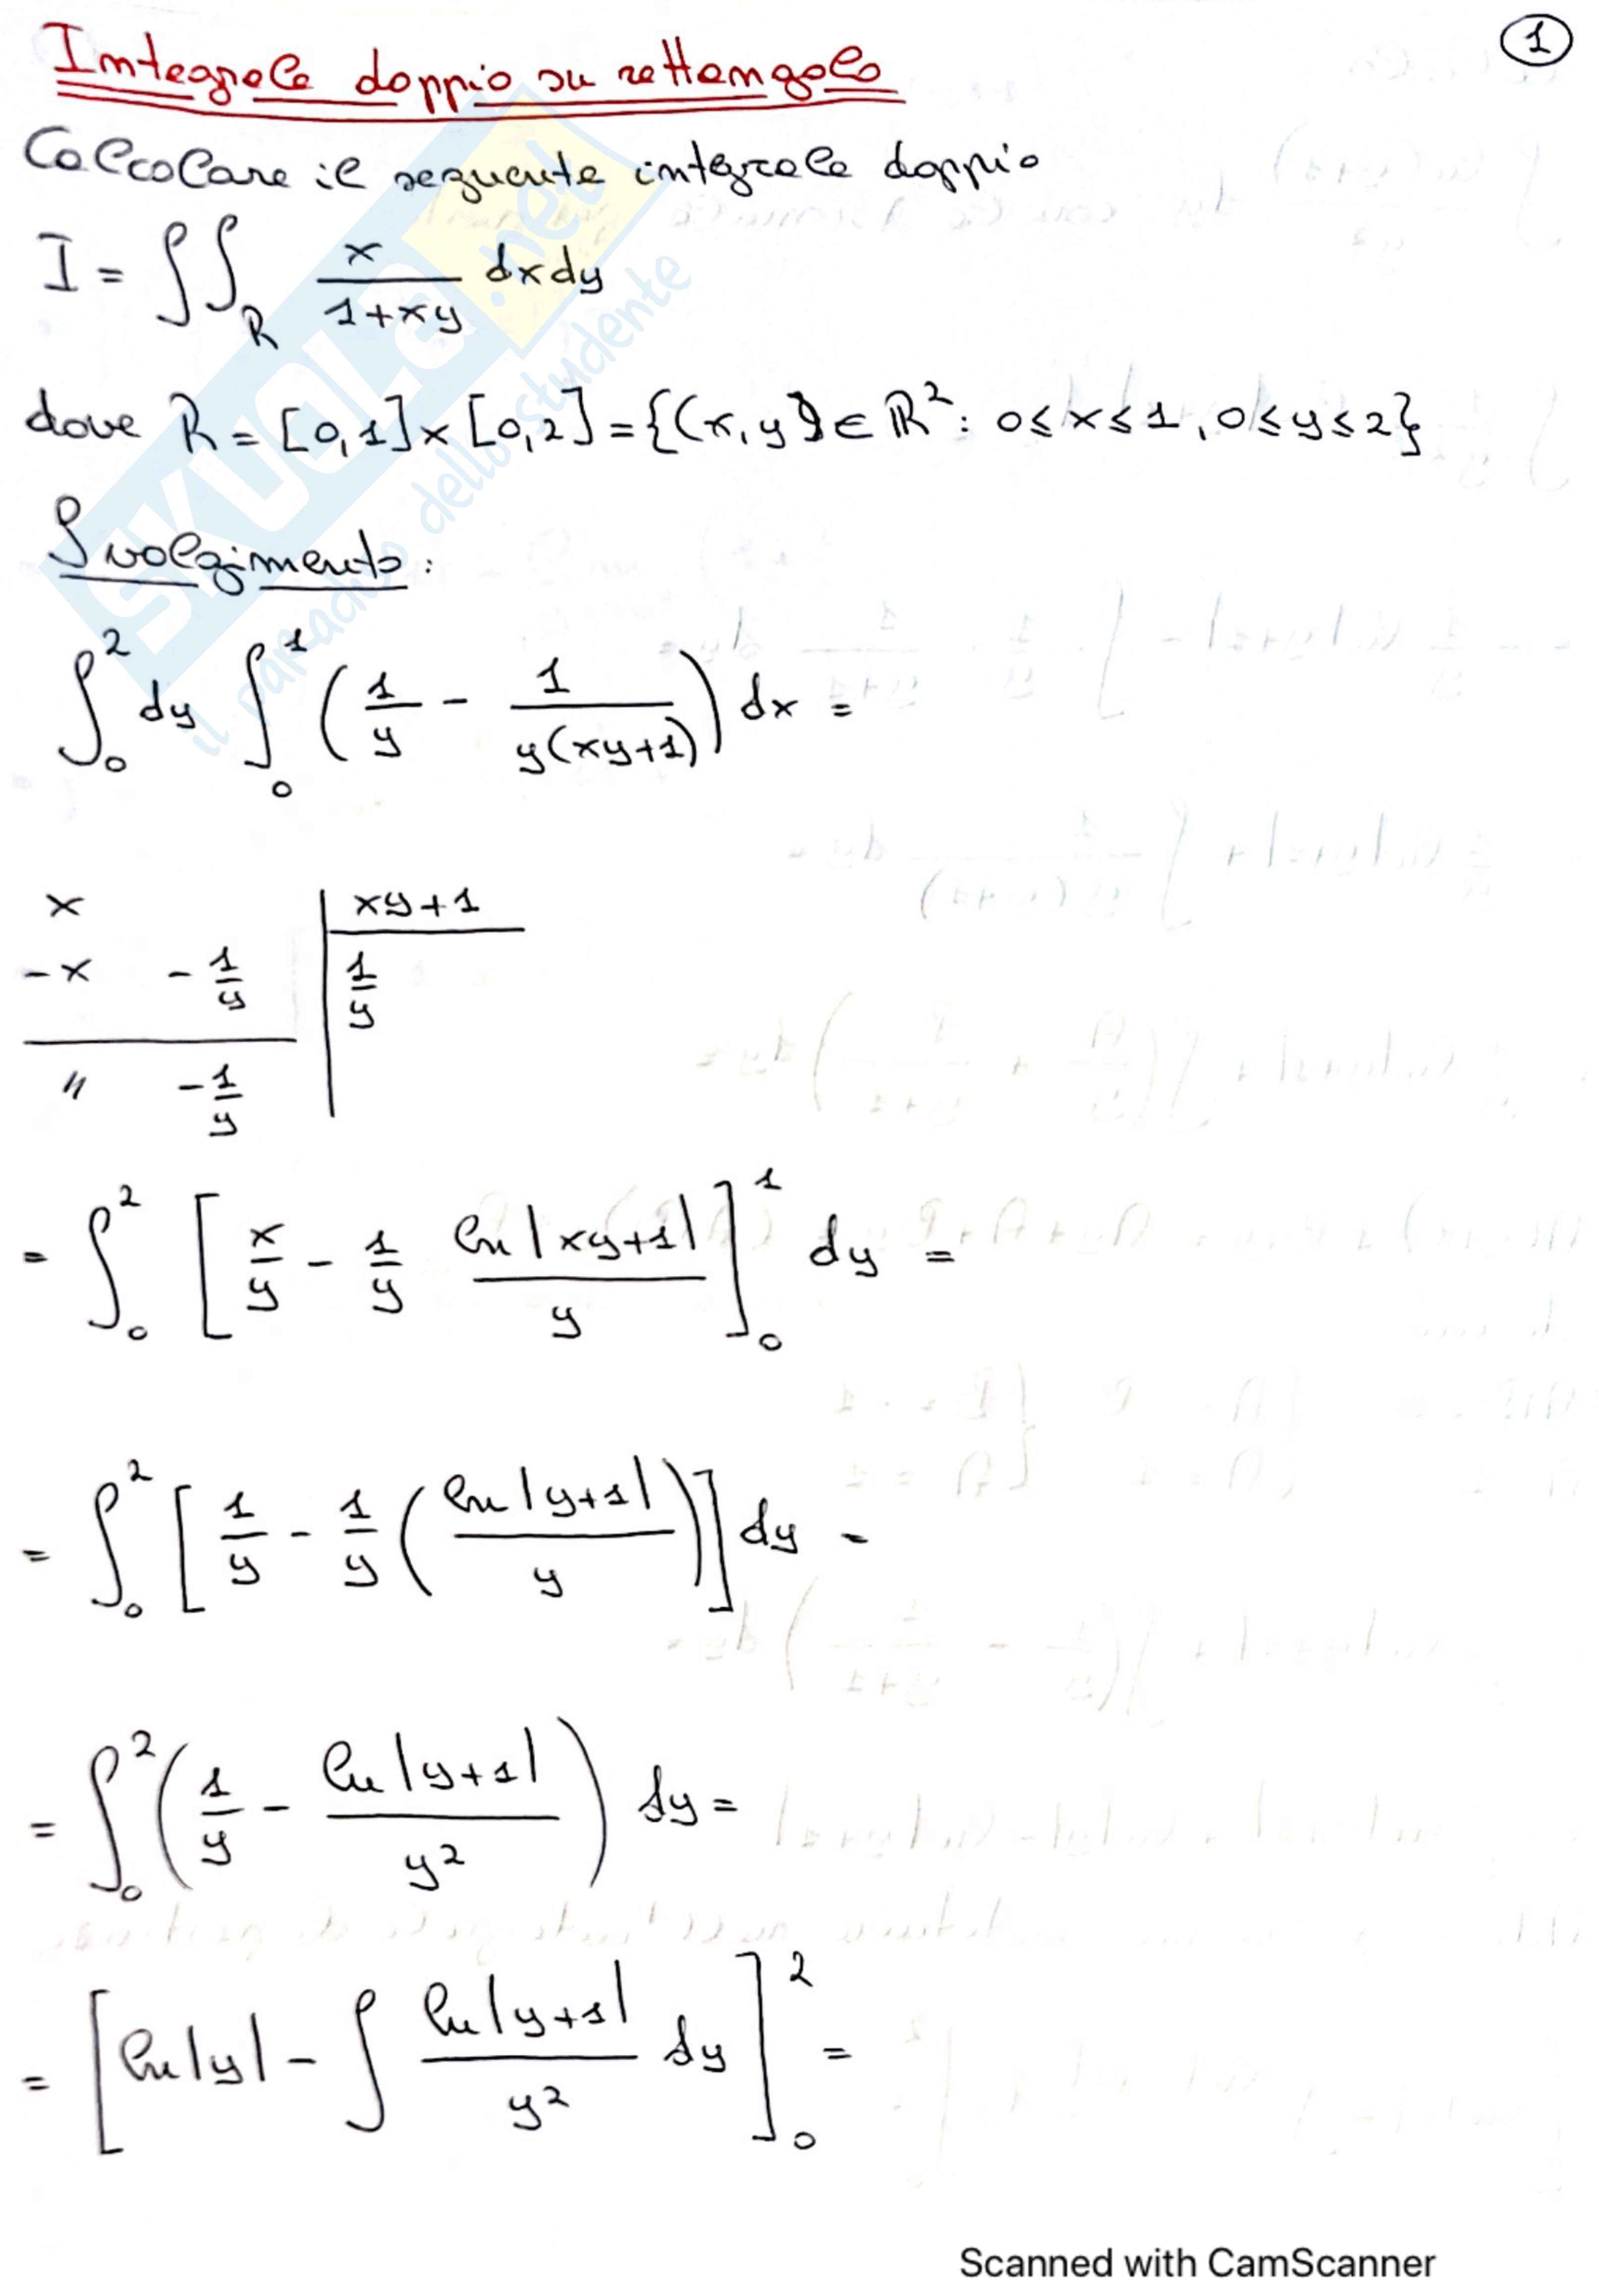 1
Integrale doppio su rettangolo
Calcolare il seguente integrale doppio
I = ∫∫_R x/(1+xy) dxdy
dove R = [0,1]×[0,2] = {(x,y) ∈ ℝ²: 0≤x≤1, 0≤y≤2}
Svolgimento:
∫₀² dy ∫₀¹ (1/y - 1/(y(xy+1))) dx =
x | xy+1
-x -1/y | 1/y
// -1/y
= ∫₀² [x/y - 1/y ln|xy+1|/y]₀¹ dy =
= ∫₀² [1/y - 1/y (ln|y+1|/y)] dy =
= ∫₀² (1/y - ln|y+1|/y²) dy =
= [ln|y| - ∫ ln|y+1|/y² dy]₀² =
SKUOLA.net
il paradiso dello studente
Scanned with CamScanner